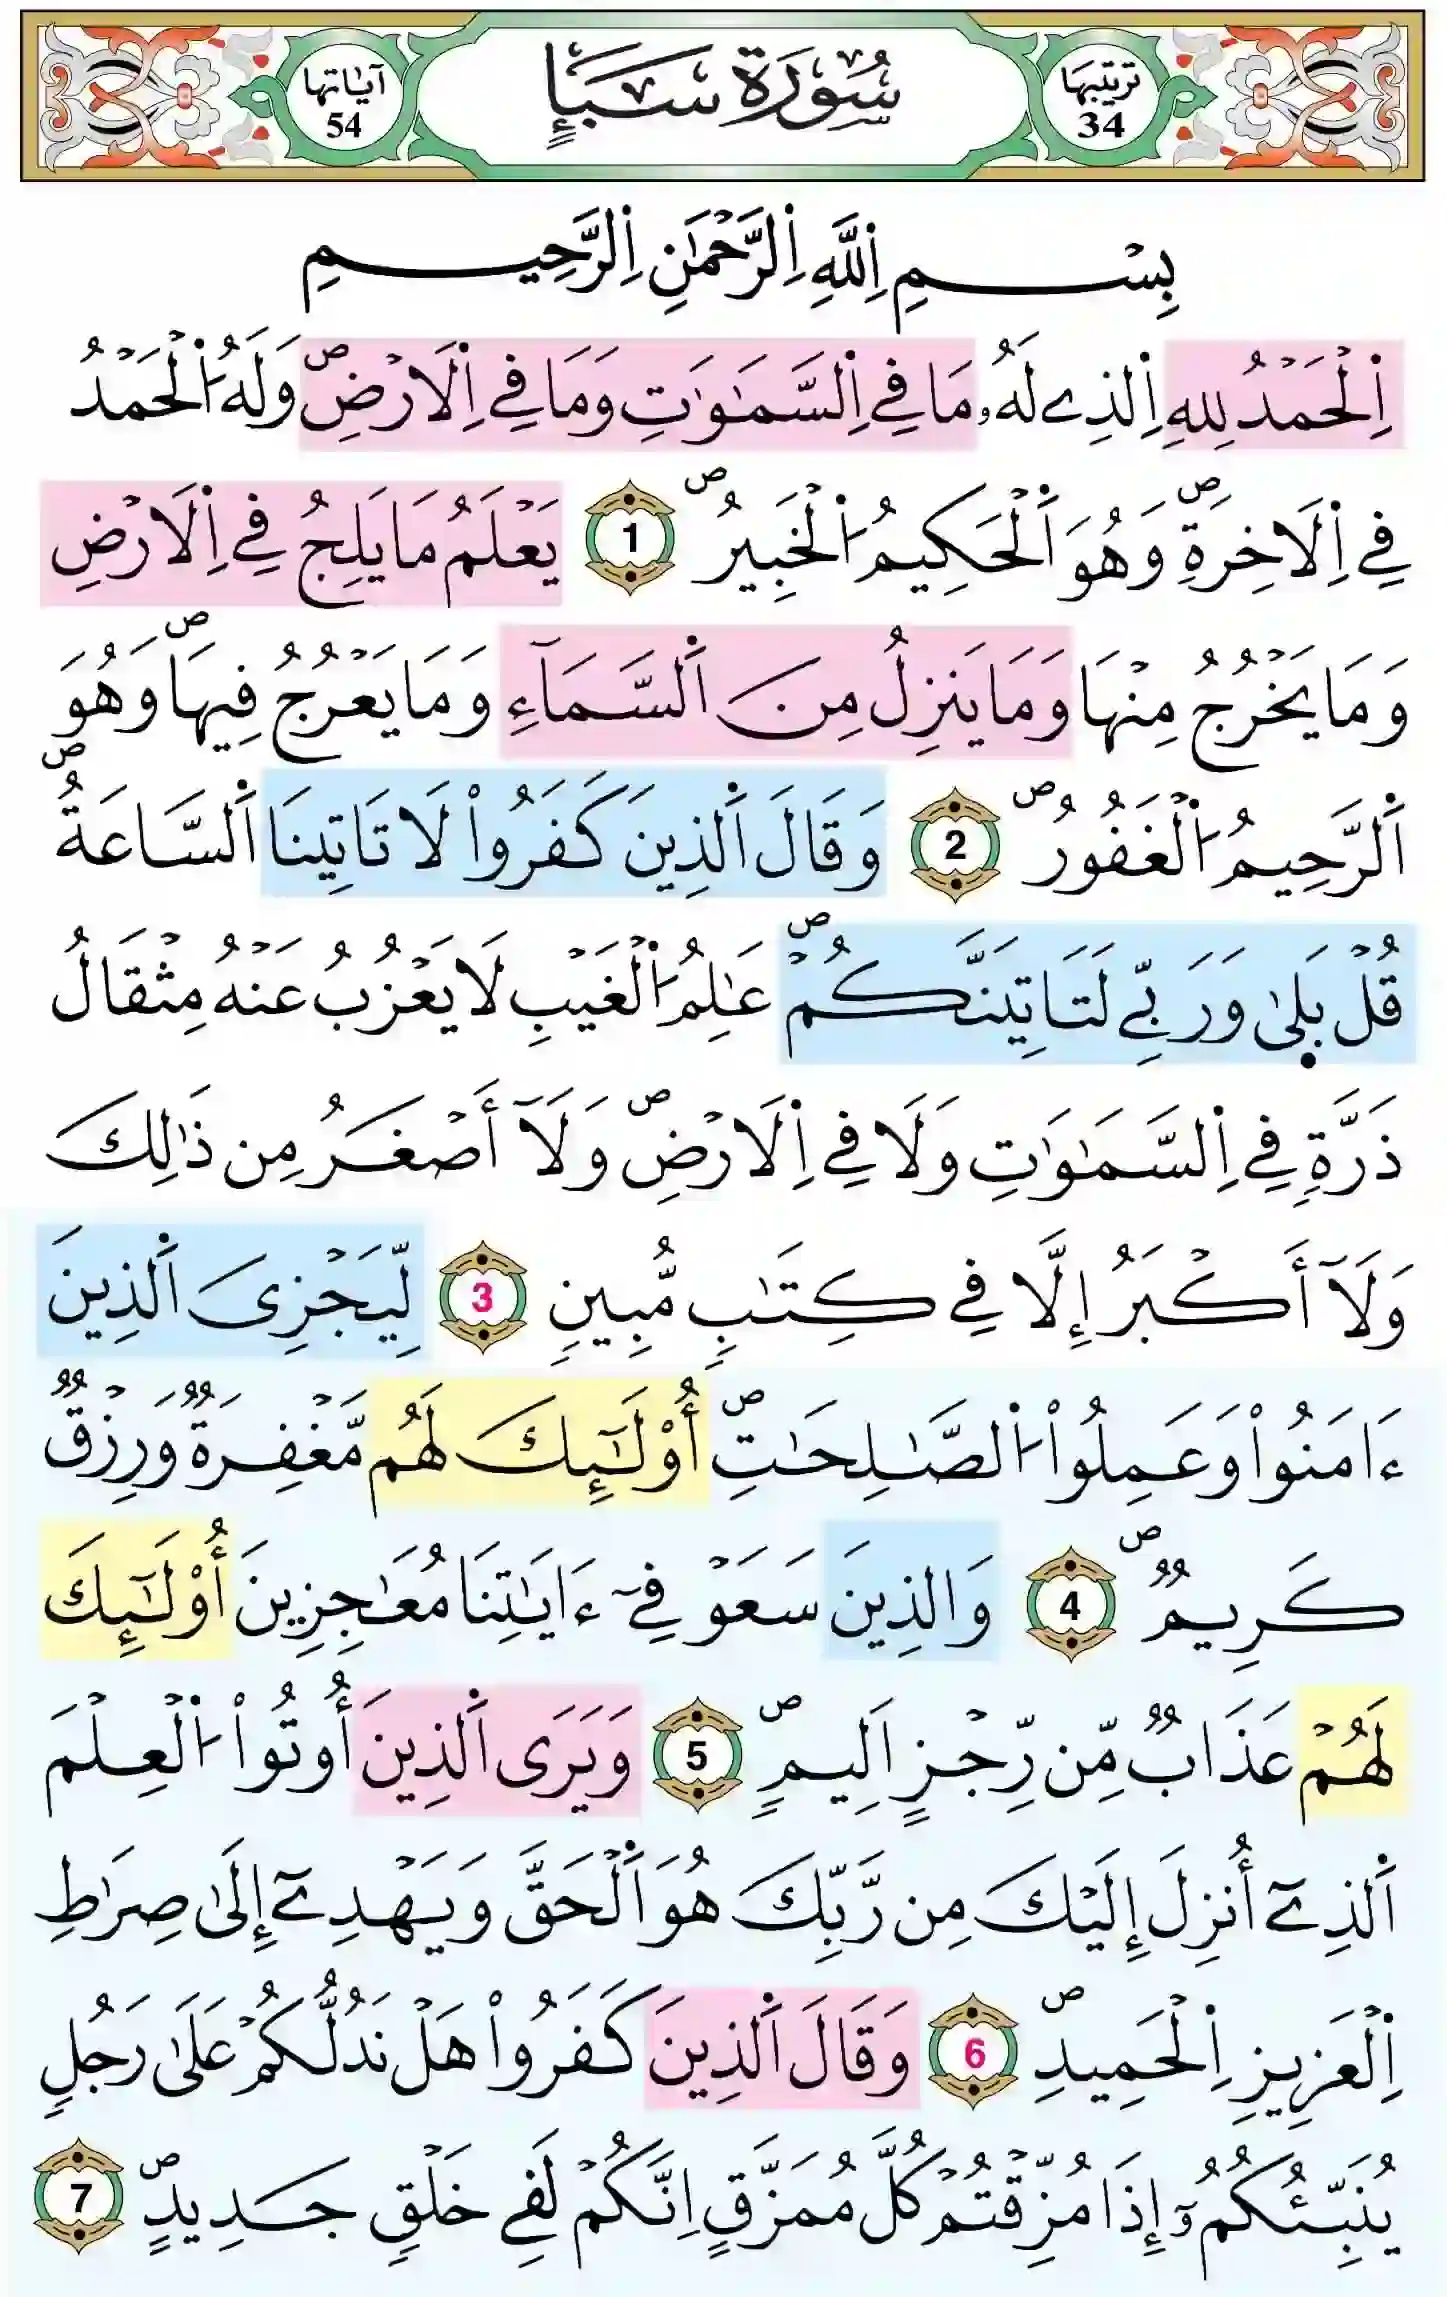 ترتيبها 34 سُورَةُ سَبَإٍ آيَاتها 54
بِسْمِ اِللَّهِ اِلرَّحْمَٰنِ اِلرَّحِيمِ
اِ۬لْحَمْدُ لِلهِ اِ۬لذِے لَهُۥ مَا فِے اِ۬لسَّمَٰوَٰتِ وَمَا فِے اِ۬لَارْضِۖ وَلَهُ اُ۬لْحَمْدُ
فِے اِ۬لَاخِرَةِۖ وَهُوَ اَ۬لْحَكِيمُ اُ۬لْخَبِيرُۖ 1 يَعْلَمُ مَا يَلِجُ فِے اِ۬لَارْضِ
وَمَا يَخْرُجُ مِنْهَا وَمَا يَنزِلُ مِنَ اَ۬لسَّمَآءِ وَمَا يَعْرُجُ فِيهَاۖ وَهُوَ
اَ۬لرَّحِيمُ اُ۬لْغَفُورُۖ 2 وَقَالَ اَ۬لذِينَ كَفَرُواْ لَا تَاتِينَا اَ۬لسَّاعَةُۖ
قُلْ بَل۪ىٰ وَرَبِّے لَتَاتِيَنَّكُمْۖ عَٰلِمُ اُ۬لْغَيْبِ لَا يَعْزُبُ عَنْهُ مِثْقَالُ
ذَرَّةٖ فِے اِ۬لسَّمَٰوَٰتِ وَلَا فِے اِ۬لَارْضِۖ وَلَآ أَصْغَرُ مِن ذَٰلِكَ
وَلَآ أَكْبَرُ إِلَّا فِے كِتَٰبٖ مُّبِينٖ 3 لِّيَجْزِىَ اَ۬لذِينَ
ءَامَنُواْ وَعَمِلُواْ اُ۬لصَّٰلِحَٰتِۖ أُوْلَٰٓئِكَ لَهُم مَّغْفِرَةٞ وَرِزْقٞ
كَرِيمٞۖ 4 وَالذِينَ سَعَوْ فِےٓ ءَايَٰتِنَا مُعَٰجِزِينَ أُوْلَٰٓئِكَ
لَهُمْ عَذَابٞ مِّن رِّجْزٍ اَلِيمٖۖ 5 وَيَرَى اَ۬لذِينَ أُوتُواْ اُ۬لْعِلْمَ
اَ۬لذِےٓ أُنزِلَ إِلَيْكَ مِن رَّبِّكَ هُوَ اَ۬لْحَقَّ وَيَهْدِےٓ إِلَىٰ صِرَٰطِ
اِ۬لْعَزِيزِ اِ۬لْحَمِيدِۖ 6 وَقَالَ اَ۬لذِينَ كَفَرُواْ هَلْ نَدُلُّكُمْ عَلَىٰ رَجُلٖ
يُنَبِّئُكُمُۥٓ إِذَا مُزِّقْتُمْ كُلَّ مُمَزَّقٍ اِنَّكُمْ لَفِے خَلْقٖ جَدِيدٍۖ 7